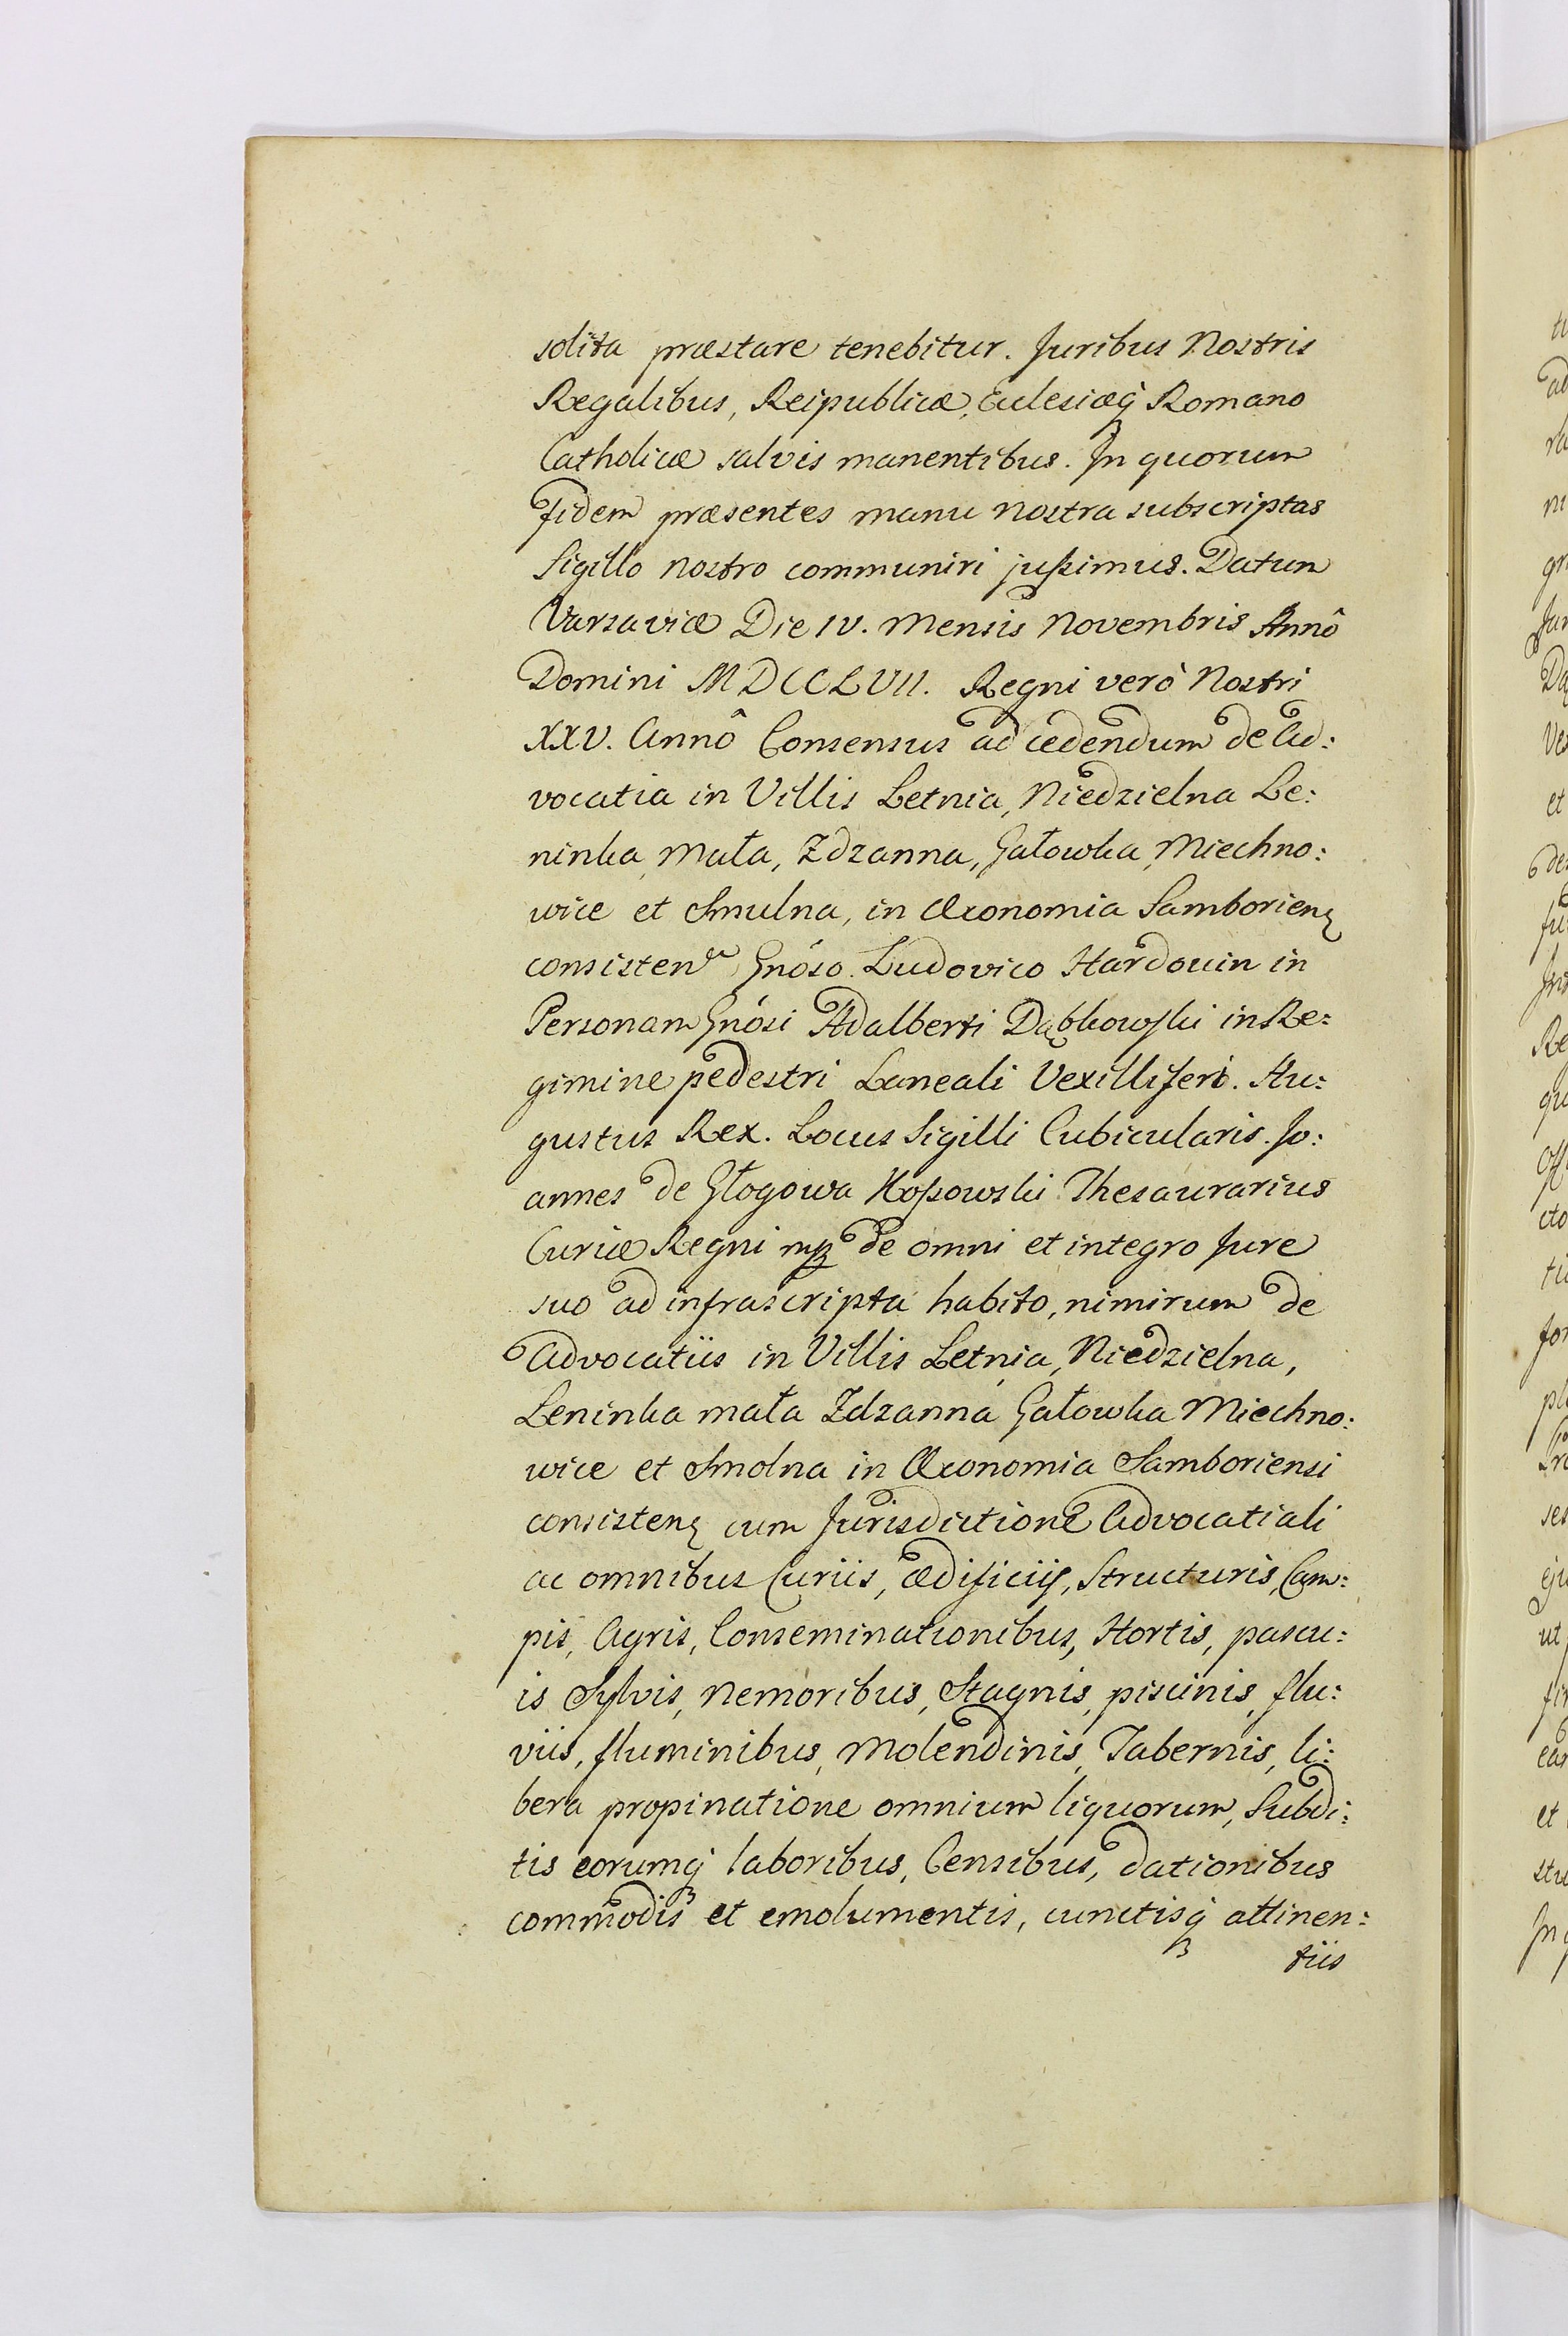 solita præstare tenebitur. Juribus Nostris
Regalibus, Reipublicæ, Eclesiæq́ Romano
Catholicæ salvis manentibus. In quorum
fidem præsentes manu nostra subscriptas
Sigillo nostro communiri jußimus. Datum
Varsaviæ Die IV. Mensis Novembris Annô
Domini MDCCLVII. Regni verò Nostri
XXV. Annô Consensus ad cedendum de Ad:
vocatia in Villis Letnia, Niedzielna Le:
ninka, Mała, Zdzanna, Gałowka, Miechno:
wice et Smulna, in Œconomia Samborien
consisten Gnóso. Ludovico Hardouin in
Personam Gnósi Adalberti Dąbkowski in Re:
gimine pedestri Laneali Vexilliferi. Au:
gustus Rex. Locus Sigilli Cubicularis. Jo:
annes de Głogowa Koßowski Thesaurarius
Curiæ Regni mp de omni et integro Jure
suo ad infrascripta habito, nimirum de
Advocatiis in Villis Letnia, Niedzielna,
Leninka mała Zdzanna Gałowka Miechno:
wice et Smolna in Œconomia Samboriensi
consisten cum Jurisdictione Advocatiali
ac omnibus Curiis, ædificiis, Structuris, Cam:
pis, Agris, Conseminationibus, Hortis, pascu:
is Sylvis, Nemoribus, Stagnis, piscinis, flu:
viis, fluminibus, Molendinis, Tabernis, li:
bera propinatione omnium liquorum, Subdi:
tis eorumq́ laboribus, Censibus, dationibus
commodis et emolumentis, cunctisq́ attinen:
tiis